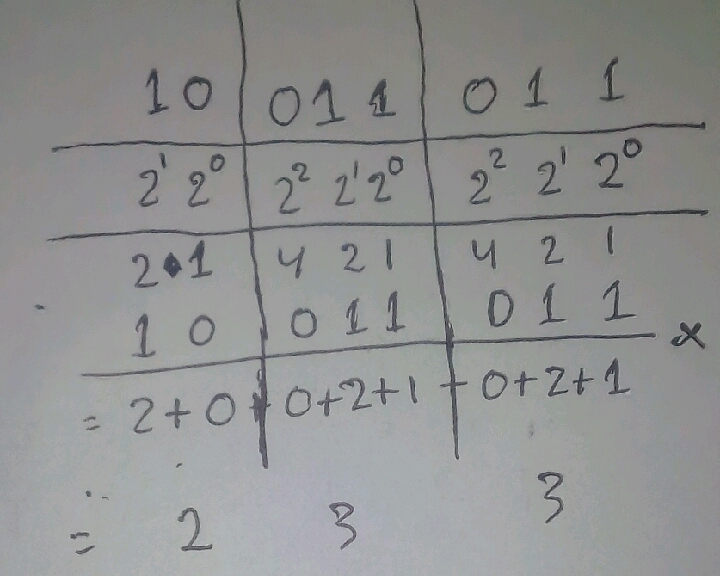 10 011 011
2¹ 2⁰ 2² 2¹ 2⁰ 2² 2¹ 2⁰
2 1 4 2 1 4 2 1
1 0 0 1 1 0 1 1 ×
= 2+0+0+2+1+0+2+1
= 2 3 3